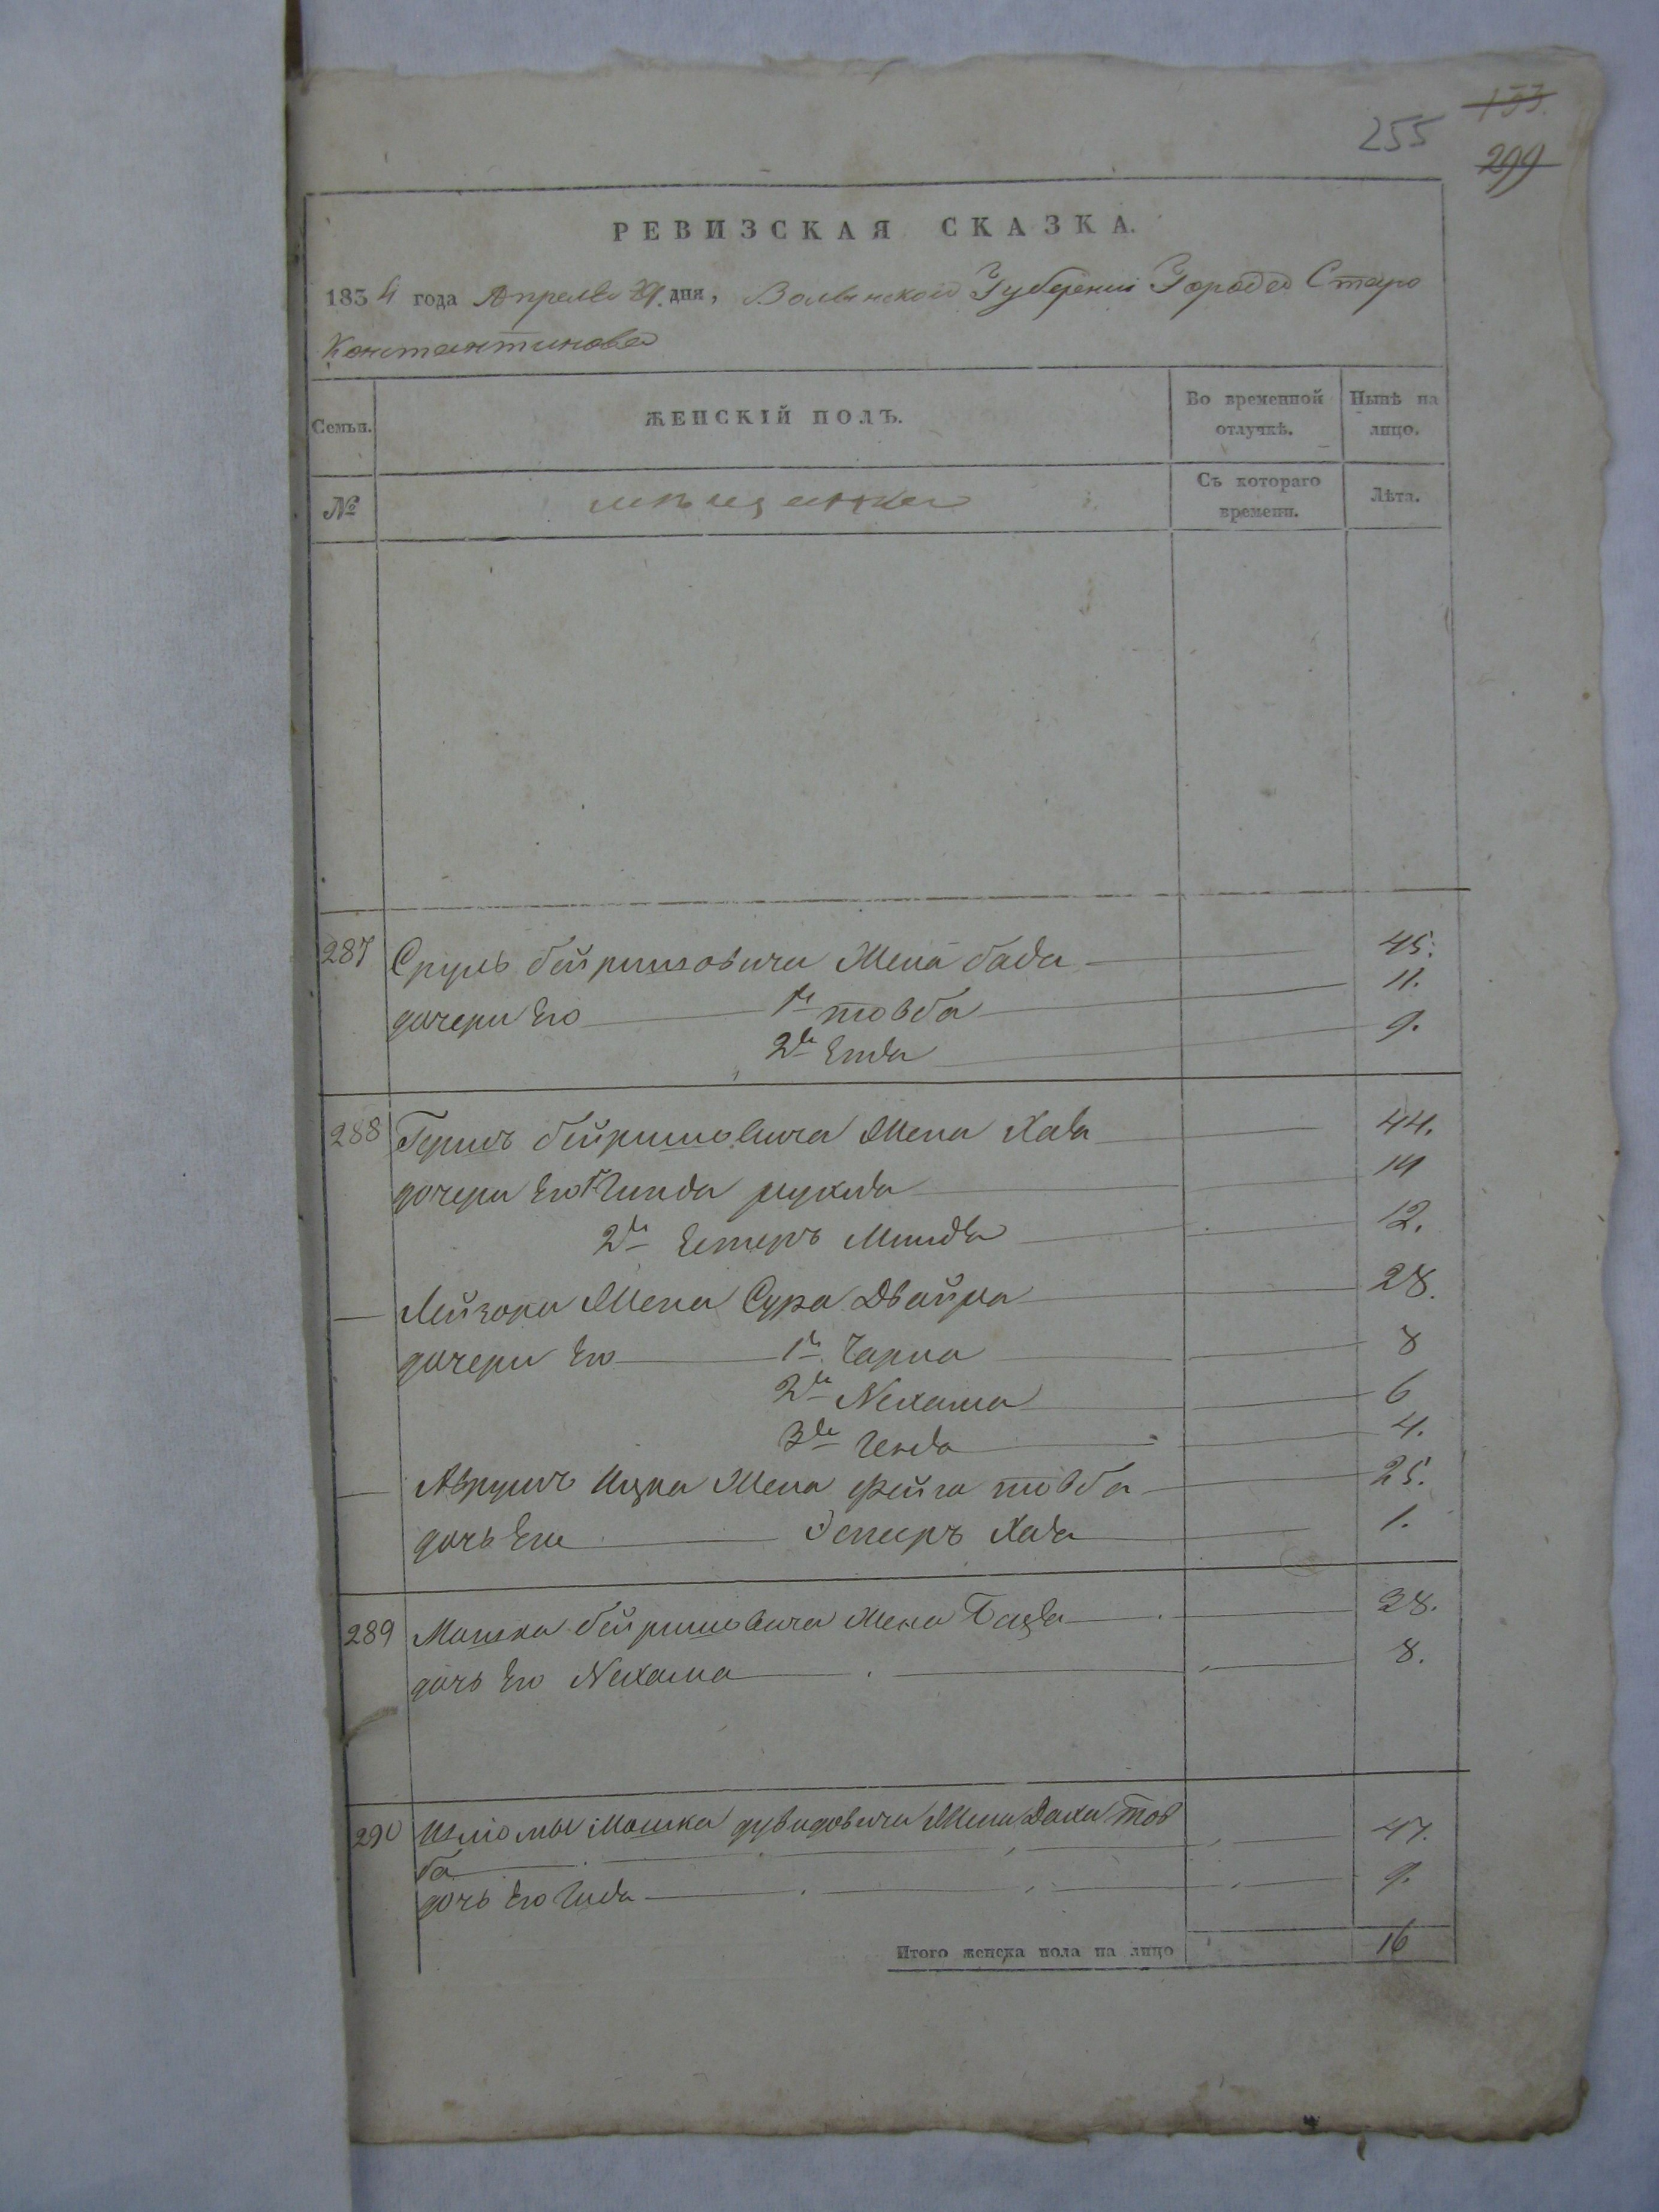 133.
255
299
РЕВИЗСКАЯ СКАЗКА.
1834 года Апреля 29 дня, Волынской Губернии Города Старо
Константинова
Семьи. ЖЕНСКІЙ ПОЛЪ. Во временной отлучкѣ. Нынѣ на лицо.
№ мѣщанки Съ котораго времени. Лѣта.
287 Сруль бейришовича Жена бада 45.
дочери Его 1я товба 11.
2я Енда 9.
288 Гершъ бейришовича Жена Хава 44.
дочери Его 1я Гинда рухля 14
2я Естеръ Миндя 12.
Лейзора Жена Сура Двойра 28.
дочери Его 1я Чарна 8
2я Нехама 6
3я Генда 4.
Аврумъ Ицка Жена Фейга товба 25.
дочь Его Эстеръ Хава 1.
289 Мошка бейришовича жена Басва 38.
дочь Его Нехама 8.
290 Шліомы Мошка дувидовича Жена Даха тов
ба 47.
дочь Его Гидя 9.
Итого женска пола на лицо 16